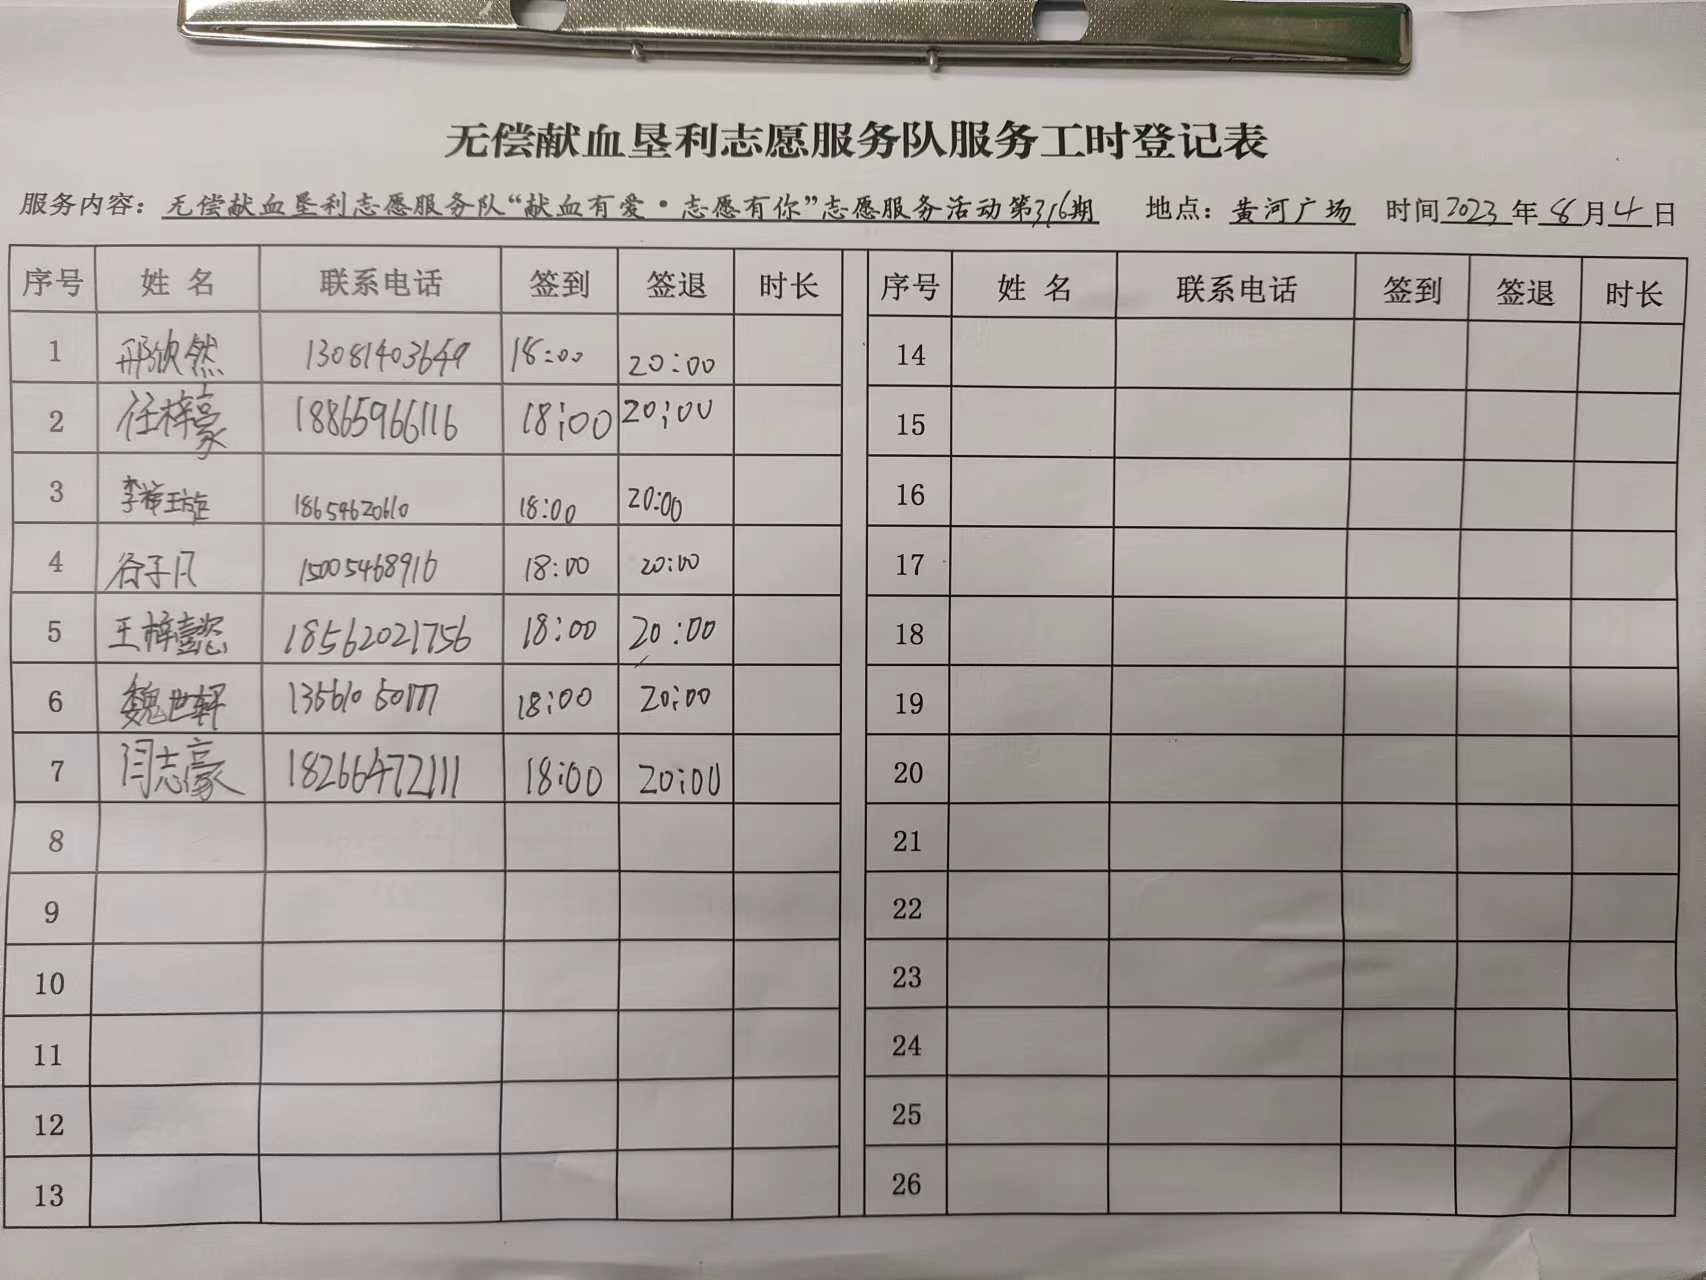 无偿献血垦利志愿服务队服务工时登记表
服务内容：无偿献血垦利志愿服务队“献血有爱·志愿有你”志愿服务活动第316期 地点：黄河广场 时间2023年8月4日
序号 姓名 联系电话 签到 签退 时长 序号 姓名 联系电话 签到 签退 时长
1 邢欣然 13081403649 18:00 20:00 14
2 任梓豪 18865966116 18:00 20:00 15
3 李 18654620610 18:00 20:00 16
4 谷子凡 15005468916 18:00 20:00 17
5 王梓懿 18562021756 18:00 20:00 18
6 魏世轩 18:00 20:00 19
7 闫志豪 18266472111 18:00 20:00 20
8 21
9 22
10 23
11 24
12 25
13 26